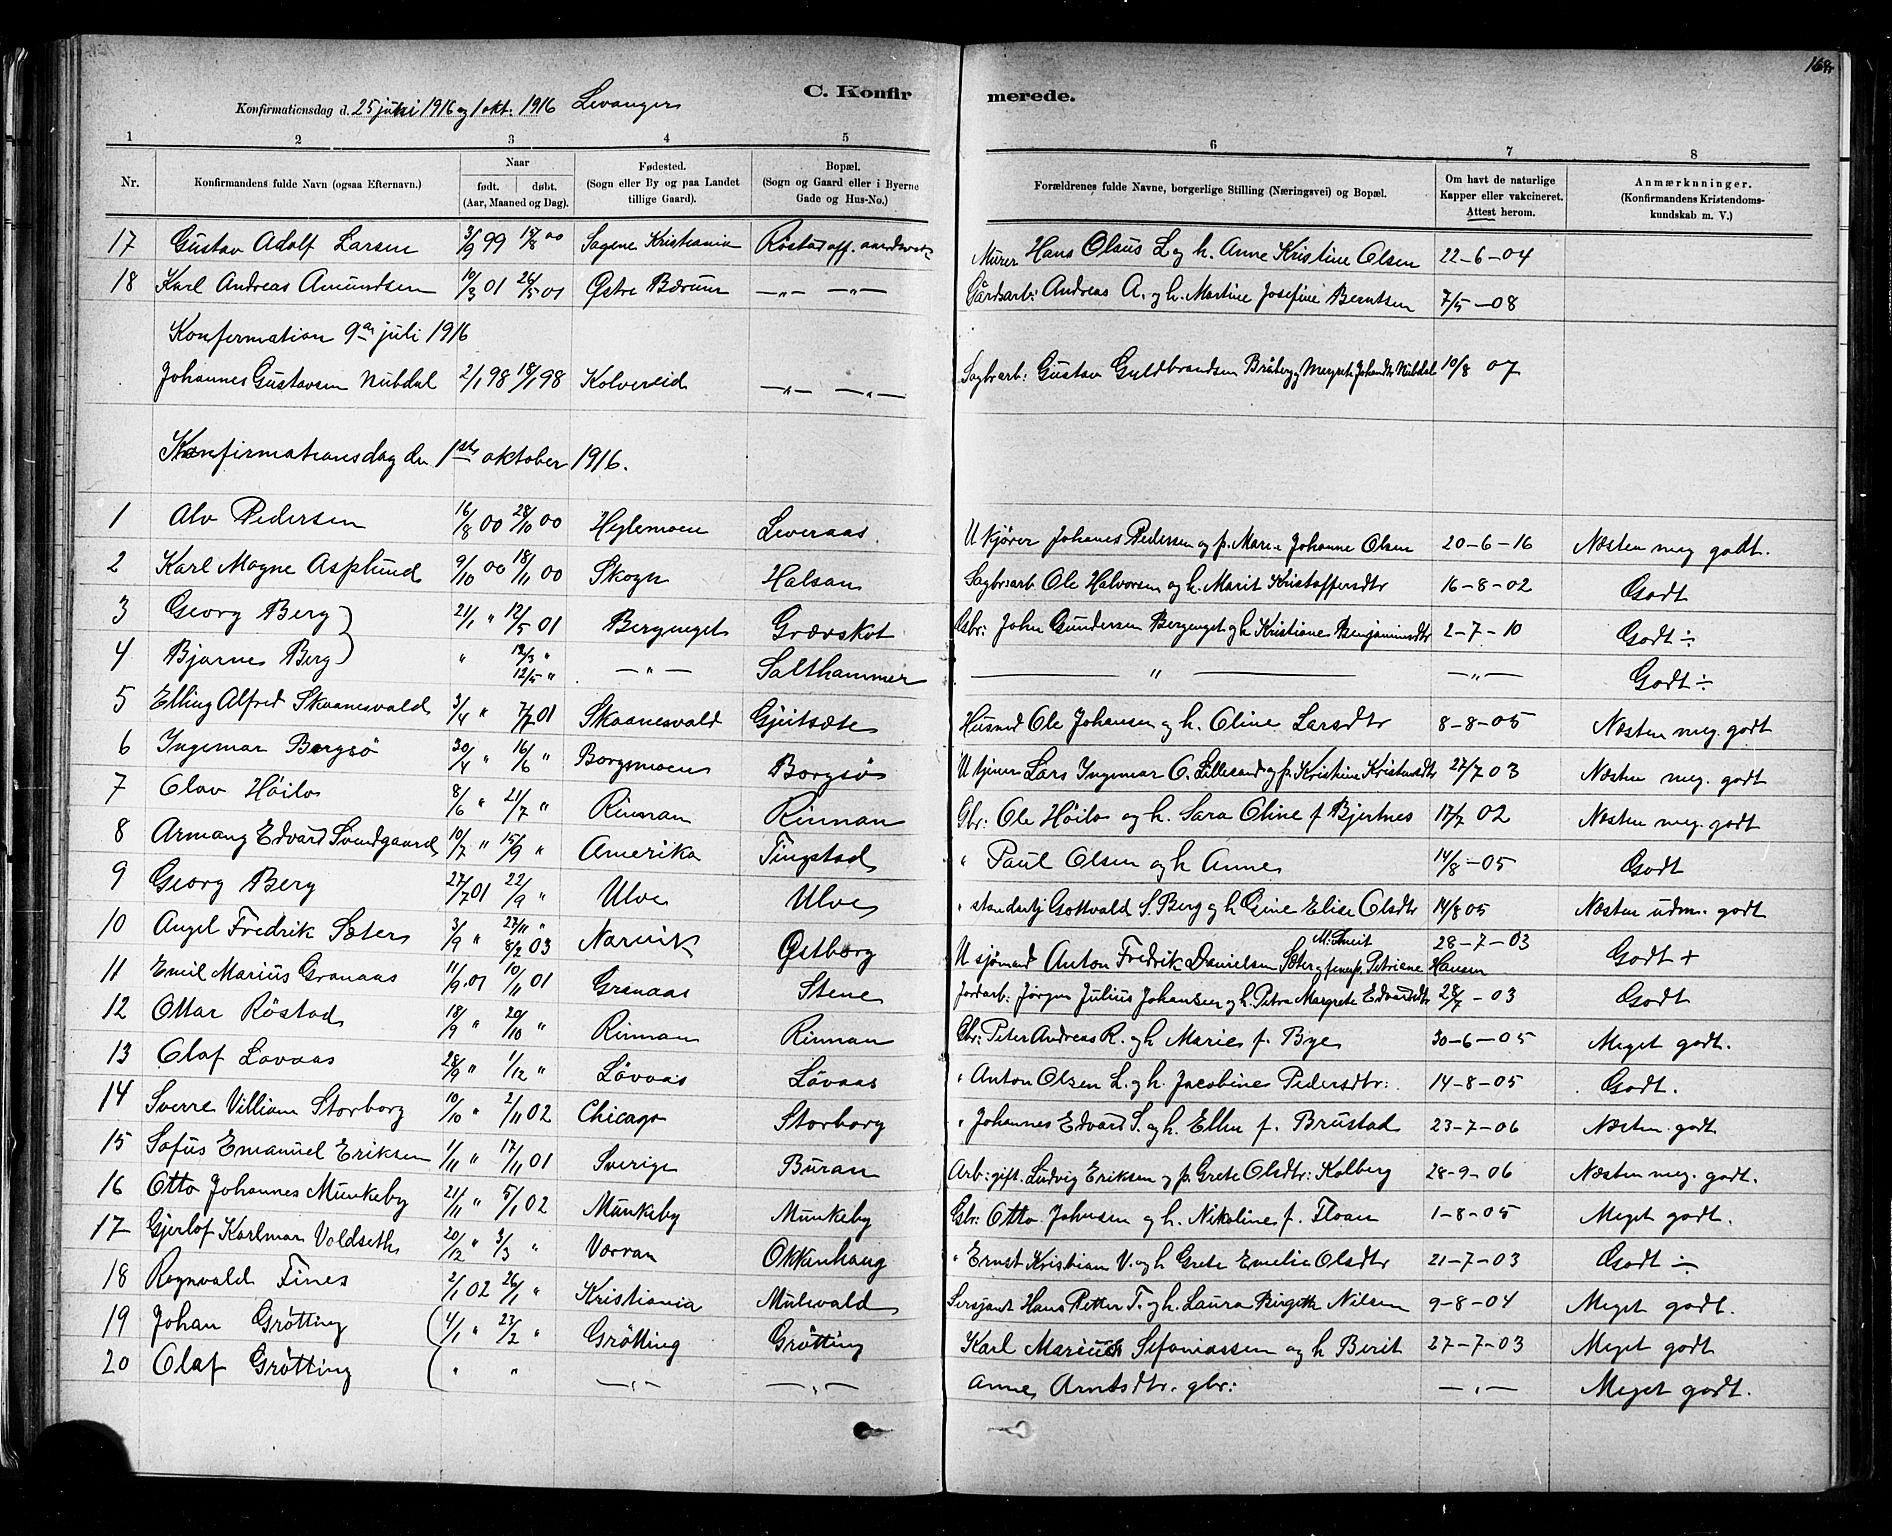 168
C. Konfirmerede.
Konfirmationsdag d. 25 juni 1916 og 1 okt. 1916 Levanger
1 2 3 4 5 6 7 8
Nr. Konfirmandens fulde Navn (ogsaa Efternavn.) Naar født. døbt. (Aar, Maaned og Dag). Fødested. (Sogn eller By og paa Landet tillige Gaard). Bopæl. (Sogn og Gaard eller i Byerne Gade og Hus-No.) Forældrenes fulde Navne, borgerlige Stilling (Næringsvei) og Bopæl. Om havt de naturlige Kapper eller vakcineret. Attest herom. Anmærkninger. (Konfirmandens Kristendomskundskab m. V.)
17 Gustav Adolf Larsen 3/9 99 Sagene Kristiania Røstad Murer Hans Olaus L. og h. Anne Kristine Olsen 22-6-04
18 Karl Andreas Amundsen 10/3 01 26/5 01 Østre Bærum —„— —„— Gårdsarb: Andreas A. og h. Martine Josefine Berntsen 7/5-08
Konfirmation 9de juli 1916
Johannes Gustavsen Nubdal 2/1 98 18/1 98 Kolvereid —„— —„— Sagbrarb: Gustav Guldbrandsen Bråberg Nubdal 10/8 07
Konfirmationsdag den 1ste oktober 1916.
1 Alv Pedersen 16/8 00 28/10 00 Heglemoen Leveraas. U kjører Johanes Pedersen og p. Marie Johanne Olsen 20-6-16 Næsten meg godt.
2 Karl Magne Asplund 9/10 00 18/11 00 Skogn Halsan Sagbrarb Ole Halvorsen og h. Marit Kristoffersdtr 16-8-02 Godt
3 Georg Berg 21/1 " 12/5 01 Bergenget Grævskot Gbr: John Gundersen Bergenget og h Kristiane Benjaminsdtr 2-7-10 Godt ÷
4 Bjarne Berg " 12/3 " 12/5 " —"— Salthammer — " — —„— Godt ÷
5 Elling Alfred Skaanesvald 3/4 " 7/7 01 Skaanesvald Gjeitsæte Husmd Ole Johansen og h. Oline Larsdtr 8-8-05 Næsten meg. godt
6 Ingemar Borgsø 30/4 " 16/6 " Borgsmoen Borgsø U tjener Lars Ingemar O. Lillesand og p. Kristine Kristensdtr 27/7 03 Næsten meg. godt
7 Olav Høilo 8/6 " 21/7 " Rinnan Rinnan Gbr: Ole Høilo og h. Sara Oline f Bjertnes 17/7 02 Næsten meg. godt
8 Armang Edvard Svendgaard 10/7 " 15/9 " Amerika Tingstad " Paul Olsen og h Anne 14/8-05 Godt
9 Georg Berg 27/7 01 22/9 " Ulve Ulve " Gottvald S. Berg og h Gine Elise Olsdtr 14/8 05 Næsten udm. godt
10 Angel Fredrik Sæter 3/9 " 27/11 " 8/2 03 Narvik Østborg U sjømand Anton Fredrik Danielsen Sæter Petriene Hansen 28-7-03 Godt +
11 Emil Marius Granaas 11/9 01 10/11 01 Granaas Stene Jordarb: Jørgen Julius Johansen og h. Petra Margrete Edvardsdtr 28/7-03 Godt
12 Ottar Røstad 18/9 " 20/10 " Rinnan Rinnan Gbr: Peter Andreas R. og h Marie f. Bye 30-6-05 Meget godt.
13 Olaf Løvaas 28/9 " 1/12 " Løvaas Løvaas " Anton Olsen L. og h. Jacobine Pedersdtr: 14-8-05 Godt.
14 Sverre Villiam Storborg 10/10 " 2/11 02 Chicago Storborg " Johannes Edvard S. og h. Ellen f. Brustad 23-7-06 Næsten godt
15 Sofus Emanuel Eriksen 1/11 " 17/11 01 Sverige Buran Arb: gift. Ludvig Eriksen og p. Grete Olsdtr: Kolberg 28-9-06 Næsten meg. godt.
16 Otto Johannes Munkeby 21/11 " 5/1 02 Munkeby Munkeby Gbr: Otto Johnsen og h. Nikoline f. Floan 1-8-05 Meget godt.
17 Gjerlof Karlmar Voldseth 20/12 " 3/3 " Værran Okkenhaug " Ernst Kristian V. og h Grete Emelie Olsdtr 21-7-03 Godt ÷
18 Regnvald Fines 2/1 02 26/1 " Kristiania Mulevald Sersjant Hans Petter F. og h. Laura Birgitte Nilsen 9-8-04 Meget godt.
19 Johan Grøtting 4/1 " 23/2 " Grøtting Grøtting Karl Marius Sefaniassen og h Berit 27-7-03 Meget godt
20 Olaf Grøtting " " —„— —„— Anne Arntsdtr. gbr: —„— Meget godt.